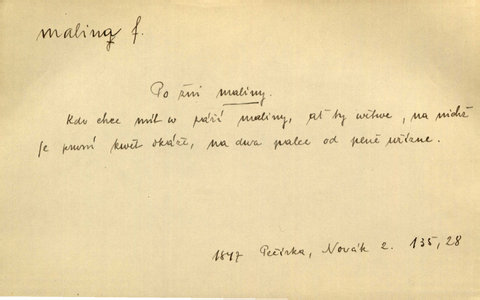 malina f.
Po žni maliny.
Kdo chce mít w září maliny, ať ty wětwe, na nichž
se první kwět ukáže, na dwa palce od pně uřízne.
1847 Pečírka, Novák 2. 135, 28